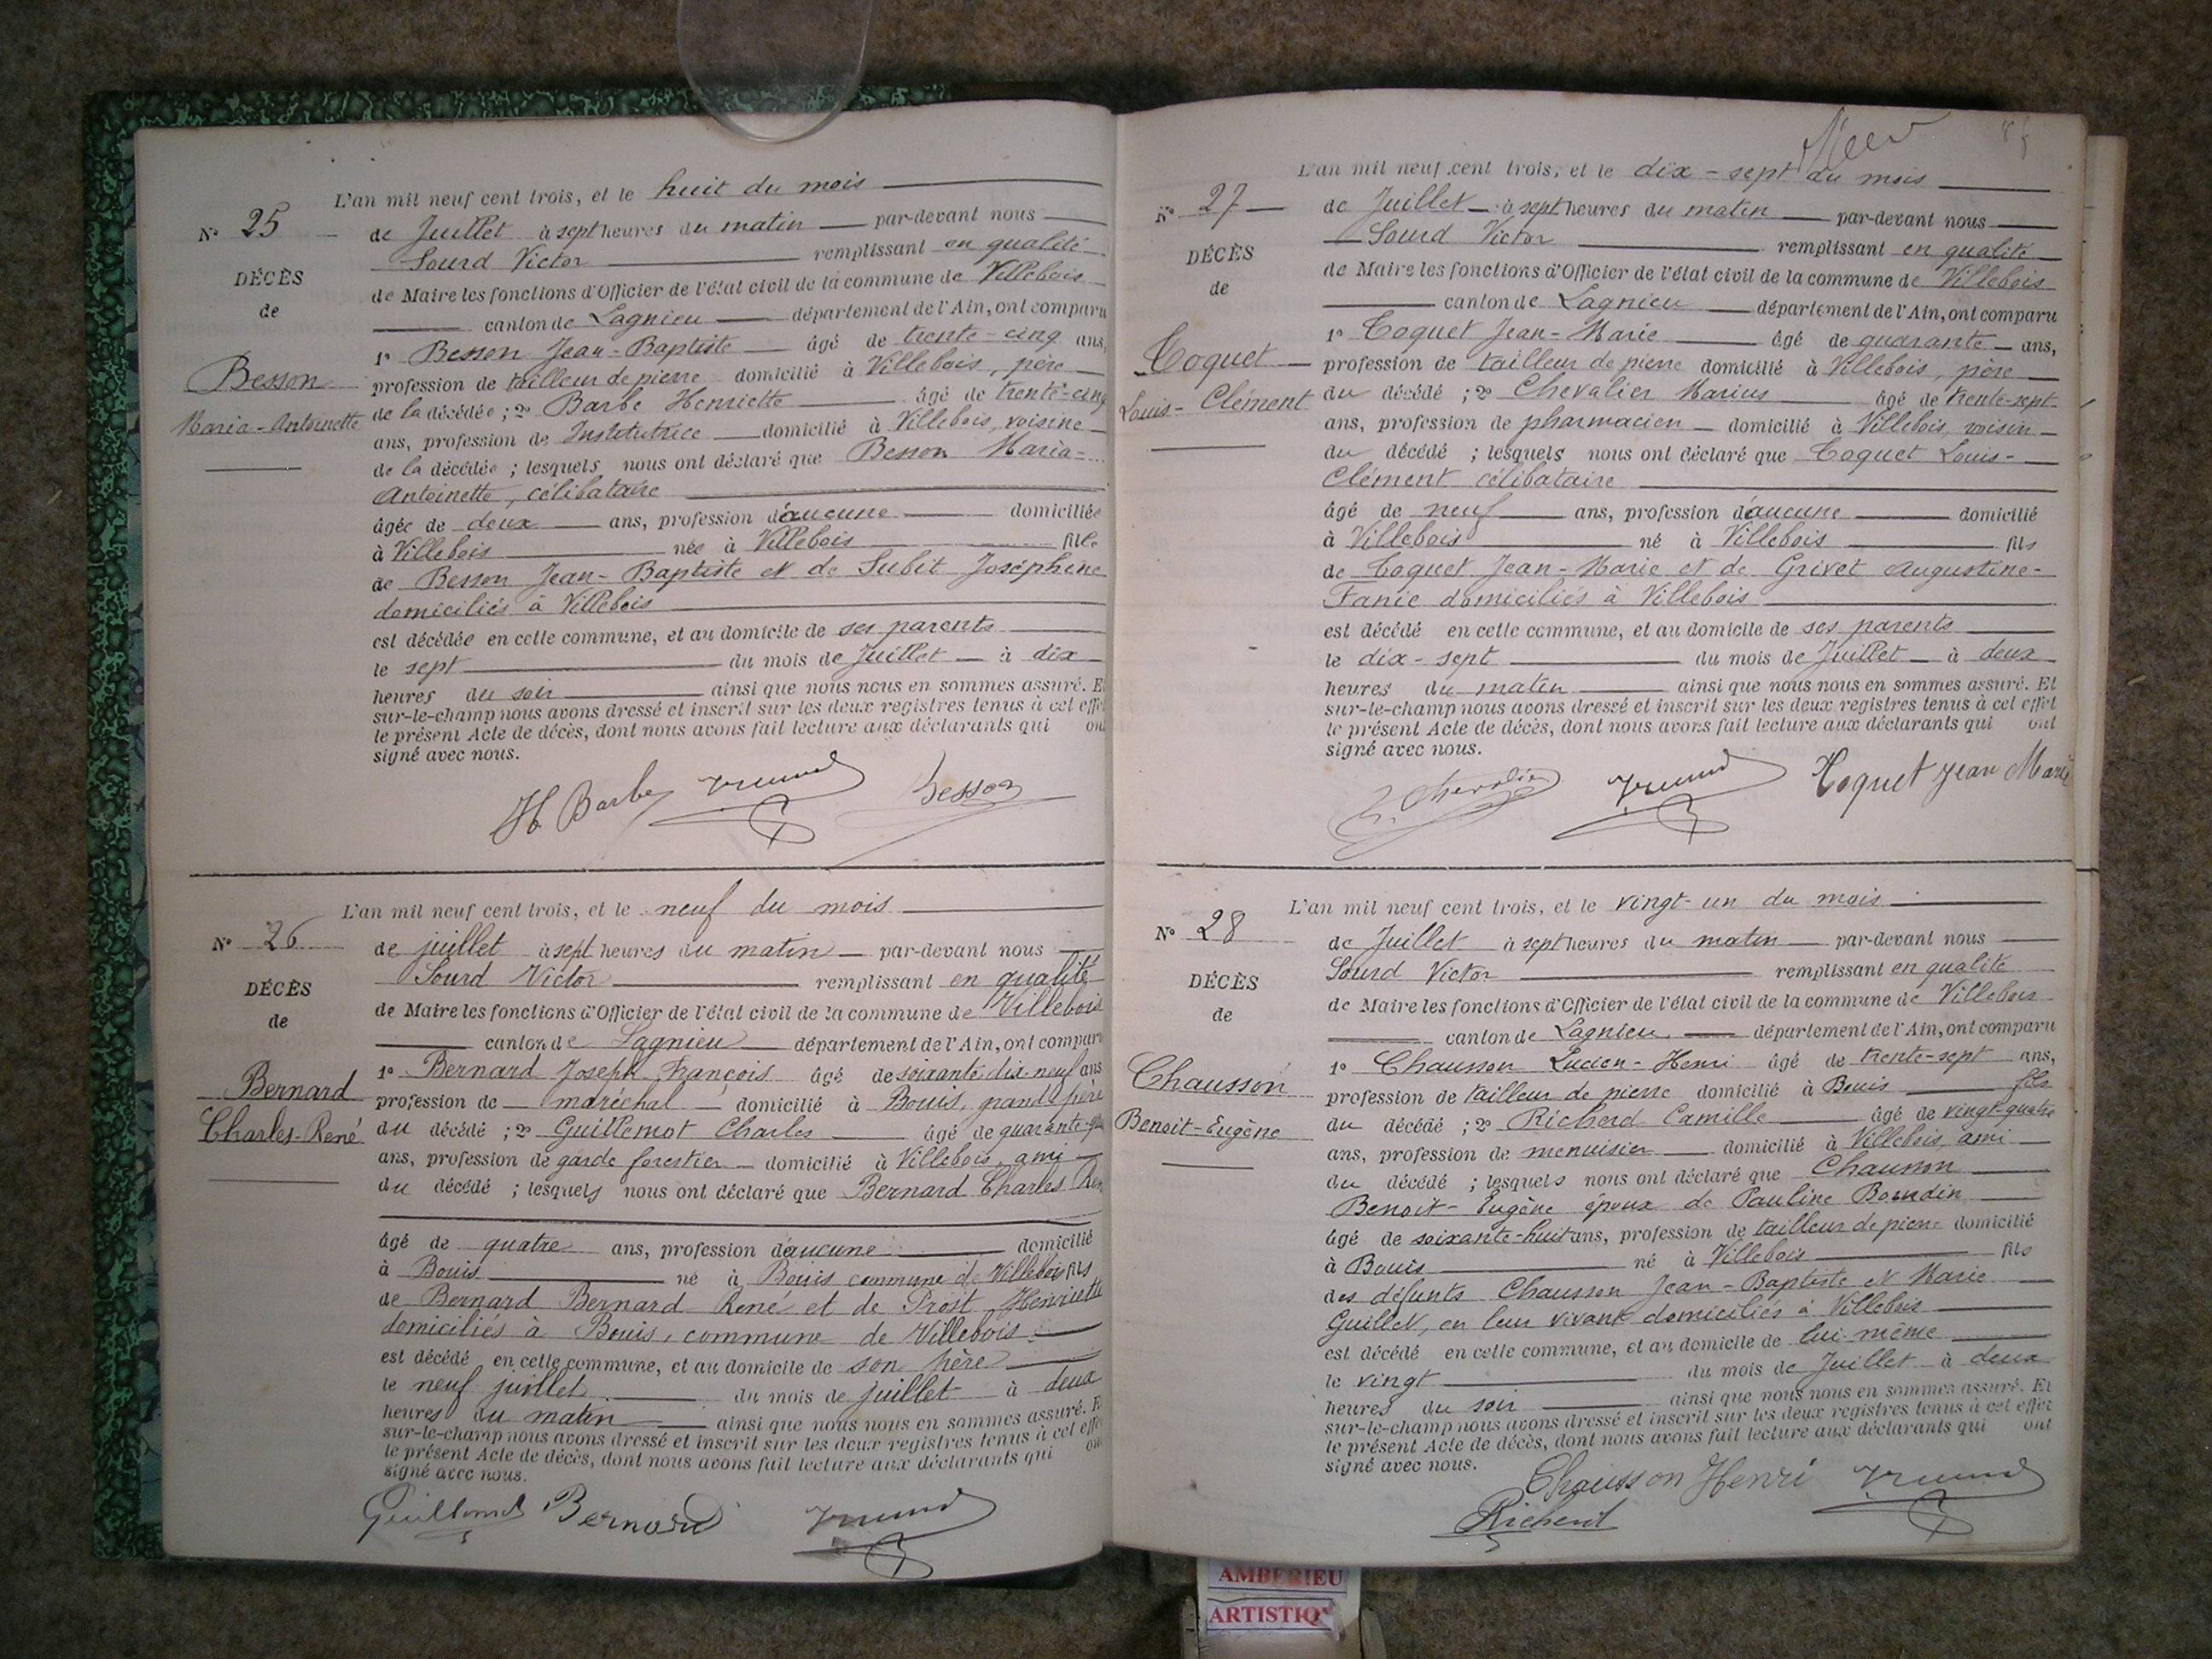 L'an mil neuf cent trois, et le huit du mois
N° 25
de Juillet à sept heures du matin par-devant nous
Sourd Victor remplissant en qualité
DÉCÈS
de Maire les fonctions d'Officier de l'état civil de la commune de Villebois
de
canton de Lagnieu département de l'Ain, ont comparu
1° Besson Jean-Baptiste âgé de trente-cinq ans,
Besson
profession de tailleur de pierre domicilié à Villebois, père
de la décédée ; 2° Barbe Henriette âgé de trente-cinq
Maria-Antoinette
ans, profession de Institutrice domicilié à Villebois, voisine
de la décédée ; lesquels nous ont déclaré que Besson Maria-
Antoinette, célibataire
âgée de deux ans, profession d'aucune domiciliée
à Villebois née à Villebois fille
de Besson Jean-Baptiste et de Subit Joséphine
domiciliés à Villebois
est décédée en cette commune, et au domicile de ses parents
le sept du mois de Juillet à dix
heures du soir ainsi que nous nous en sommes assuré. Et
sur-le-champ nous avons dressé et inscrit sur les deux registres tenus à cet effet
le présent Acte de décès, dont nous avons fait lecture aux déclarants qui ont
signé avec nous.
H. Barbe Besson
L'an mil neuf cent trois, et le neuf du mois
N° 26
de juillet à sept heures du matin par-devant nous
Sourd Victor remplissant en qualité
DÉCÈS
de Maire les fonctions d'Officier de l'état civil de la commune de Villebois
de
canton de Lagnieu département de l'Ain, ont comparu
1° Bernard Joseph François âgé de soixante-dix-neuf ans
Bernard
profession de maréchal domicilié à Bouis, grand père
Charles-René
du décédé ; 2° Guillemot Charles âgé de quarante-
ans, profession de garde forestier domicilié à Villebois, ami
du décédé ; lesquels nous ont déclaré que Bernard Charles Ren
âgé de quatre ans, profession d'aucune domicilié
à Bouis né à Bouis commune de Villebois fils
de Bernard Bernard René et de Prost Henriette
domiciliés à Bouis, commune de Villebois
est décédé en cette commune, et au domicile de son père
le neuf juillet du mois de juillet à deux
heures du matin ainsi que nous nous en sommes assuré. Et
sur-le-champ nous avons dressé et inscrit sur les deux registres tenus à cet effet
le présent Acte de décès, dont nous avons fait lecture aux déclarants qui ont
signé avec nous.
Bernard
L'an mil neuf cent trois, et le dix-sept du mois
N° 27
de Juillet à sept heures du matin par-devant nous
Sourd Victor remplissant en qualité
DÉCÈS
de Maire les fonctions d'Officier de l'état civil de la commune de Villebois
de
canton de Lagnieu département de l'Ain, ont comparu
1° Coquet Jean-Marie âgé de quarante ans,
Coquet
profession de tailleur de pierre domicilié à Villebois, père
Louis-Clément
du décédé ; 2° Chevalier Marius âgé de trente-sept
ans, profession de pharmacien domicilié à Villebois, voisin
du décédé ; lesquels nous ont déclaré que Coquet Louis-
Clément célibataire
âgé de neuf ans, profession d'aucune domicilié
à Villebois né à Villebois fils
de Coquet Jean-Marie et de Grivet Augustine-
Fanie domiciliés à Villebois
est décédé en cette commune, et au domicile de ses parents
le dix-sept du mois de Juillet à deux
heures du matin ainsi que nous nous en sommes assuré. Et
sur-le-champ nous avons dressé et inscrit sur les deux registres tenus à cet effet
le présent Acte de décès, dont nous avons fait lecture aux déclarants qui ont
signé avec nous.
Coquet Jean Marie
L'an mil neuf cent trois, et le vingt-un du mois
N° 28
de Juillet à sept heures du matin par-devant nous
Sourd Victor remplissant en qualité
DÉCÈS
de Maire les fonctions d'Officier de l'état civil de la commune de Villebois
de
canton de Lagnieu, département de l'Ain, ont comparu
1° Chausson Lucien-Henri âgé de trente-sept ans,
Chausson
profession de tailleur de pierre domicilié à Bouis fils
Benoit-Eugène
du décédé ; 2° Richerd Camille âgé de vingt-quatre
ans, profession de menuisier domicilié à Villebois, ami
du décédé ; lesquels nous ont déclaré que Chausson
Benoit-Eugène époux de Pauline
âgé de soixante-huit ans, profession de tailleur de pierre domicilié
à Bouis né à Villebois fils
des défunts Chausson Jean-Baptiste et Marie
Guillet, en leur vivant domiciliés à Villebois
est décédé en cette commune, et au domicile de lui-même
le vingt du mois de Juillet à deux
heures du soir ainsi que nous nous en sommes assuré. Et
sur-le-champ nous avons dressé et inscrit sur les deux registres tenus à cet effet
le présent Acte de décès, dont nous avons fait lecture aux déclarants qui ont
signé avec nous.
Chausson Henri
Richerd
AMBERIEU
ARTISTIQ